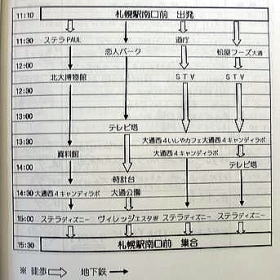 11:10 札幌駅南口前 出発
11:30 ステラPAUL 恋人パーク 道庁 松屋フーズ大通
12:00 北大博物館 STV STV
12:30
13:00 テレビ塔
13:30 大通西4いしやカフェ 大通西4キャンディラボ
資料館 大通西4キャンディラボ
14:00 テレビ塔
時計台
14:30 大通西4キャンディラボ 大通公園
15:00 ステラディズニー ヴィレッジエスタ ステラディズニー ステラディズニー
15:30 札幌駅南口前 集合
※ 徒歩 地下鉄